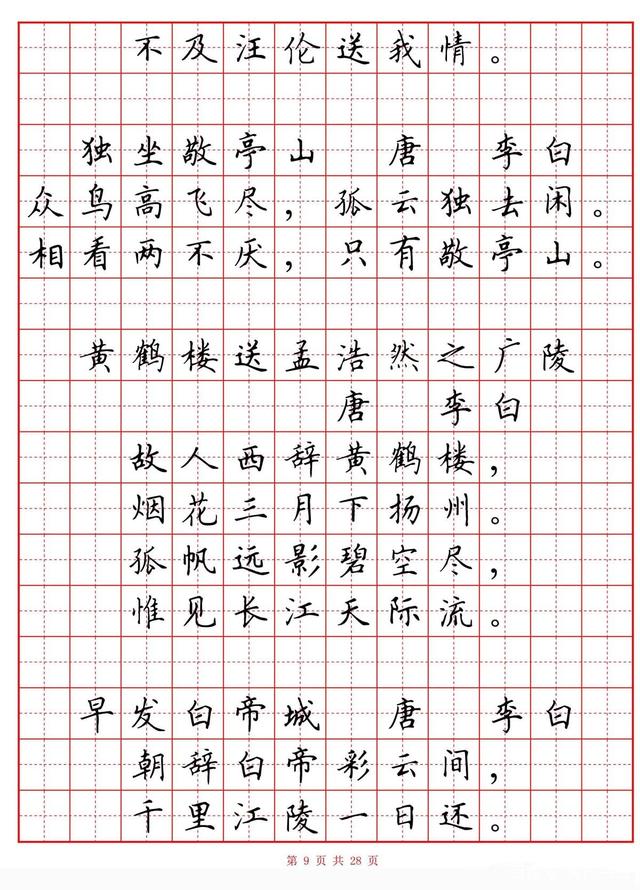 不及汪伦送我情。
独坐敬亭山 唐 李白
众鸟高飞尽，孤云独去闲。
相看两不厌，只有敬亭山。
黄鹤楼送孟浩然之广陵
唐 李白
故人西辞黄鹤楼，
烟花三月下扬州。
孤帆远影碧空尽，
惟见长江天际流。
早发白帝城 唐 李白
朝辞白帝彩云间，
千里江陵一日还。
第 9 页 共 28 页